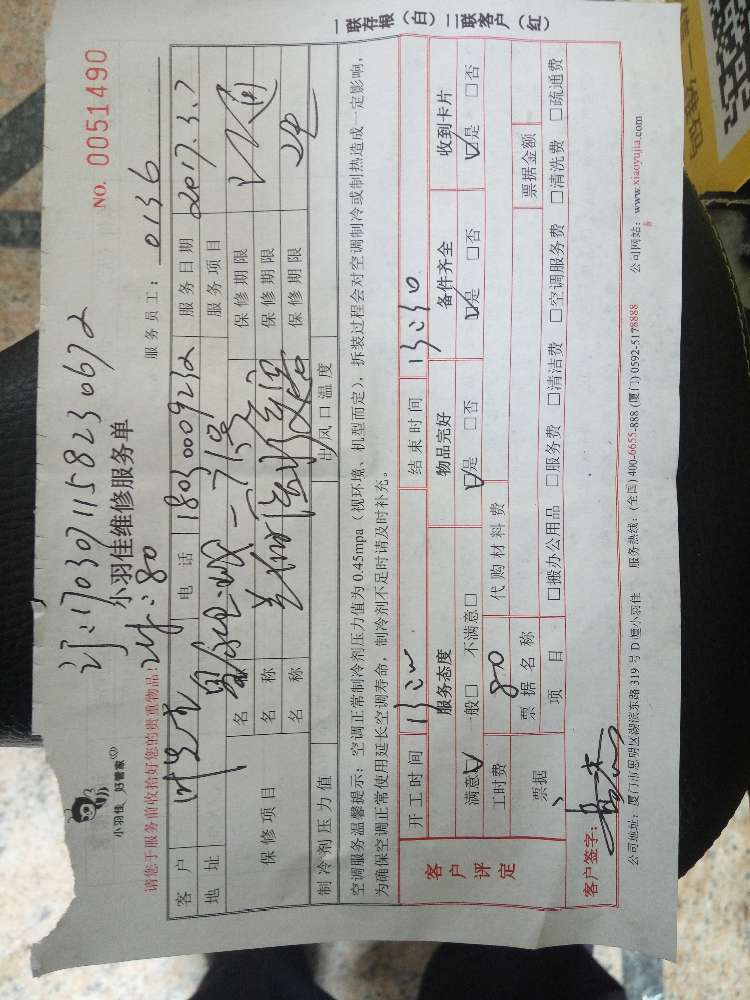 一联存根（白）二联客户（红）
1703071158230672
小羽佳 好管家
小羽佳维修服务单
NO. 0051490
请您于服务前收拾好您的贵重物品！
服务员工： 0136
客户 叶先生 电话 18030009232 服务日期 2017.3.7
地址 服务项目
保修项目
名称 保修期限
名称 保修期限
名称 保修期限
制冷剂压力值 出风口温度
空调服务温馨提示：空调正常制冷剂压力值为0.45mpa（视环境、机型而定），拆装过程会对空调制冷或制热造成一定影响，
为确保空调正常使用延长空调寿命，制冷剂不足时请及时补充。
客户评定
开工时间 结束时间
服务态度 物品完好 备件齐全 收到卡片
满意☑ 一般□ 不满意□ ☑是 □否 ☑是 □否 ☑是 □否
工时费 80 代购材料费
票据 票据名称 票据金额
项目 □搬办公用品 □服务费 □清洁费 □空调服务费 □清洗费 □疏通费
客户签字：
公司地址：厦门市思明区湖滨东路319号D幢小羽佳 服务热线：(全国) 400-6655-888 (厦门) 0592-5178888 公司网站：www.xiaoyujia.com